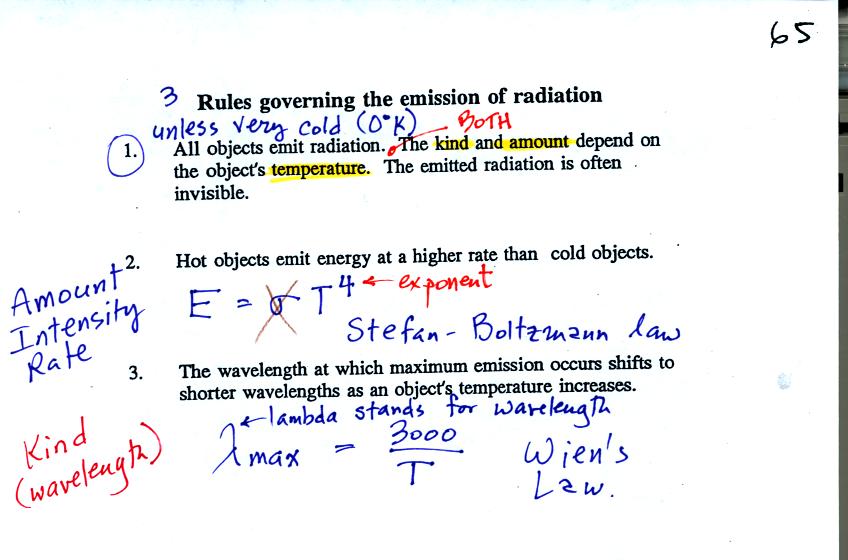 65
3 Rules governing the emission of radiation
unless very cold (0°K) BOTH
1. All objects emit radiation. The kind and amount depend on
the object's temperature. The emitted radiation is often
invisible.
Amount
Intensity
Rate
2. Hot objects emit energy at a higher rate than cold objects.
E = σ T⁴ ← exponent
Stefan-Boltzmann law
3. The wavelength at which maximum emission occurs shifts to
shorter wavelengths as an object's temperature increases.
← lambda stands for wavelength
Kind
(wavelength)
λmax = 3000/T
Wien's
Law.